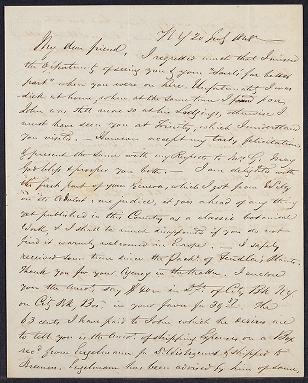 My dear friend, I regretted much that I missed
the opportunity of seeing you & your "
part" when you were on here. Unfortunately I was
sick at home, & when at the same time poor
John was still more so at his lodgings, otherwise
must have seen you at Trinity, which I understand
you visited. — However accept my hearty felicitations,
& present the same with my Respects to Mrs G. May
God bless & prosper you both. — I am delighted with
the first part of your Genera, which I got from Wiley
in it goes ahead of any thing
yet published in this Country as a classic botanical
Work, & I shall be much disappointed if you do not
find it warmly welcomed in Europe. — I safely
received some time since the
Thank you for your Agency in the matter. I enclose
you the amt, say $ on City Bk NY
on City Bk Bos in your favor for 39 The
63 cents I have paid to John which he desires me
to tell you is the amt of shipping Expenses on a Box
recd from Engelmann for & shipped to
Bremen. Engelmann has been advised by him of same.